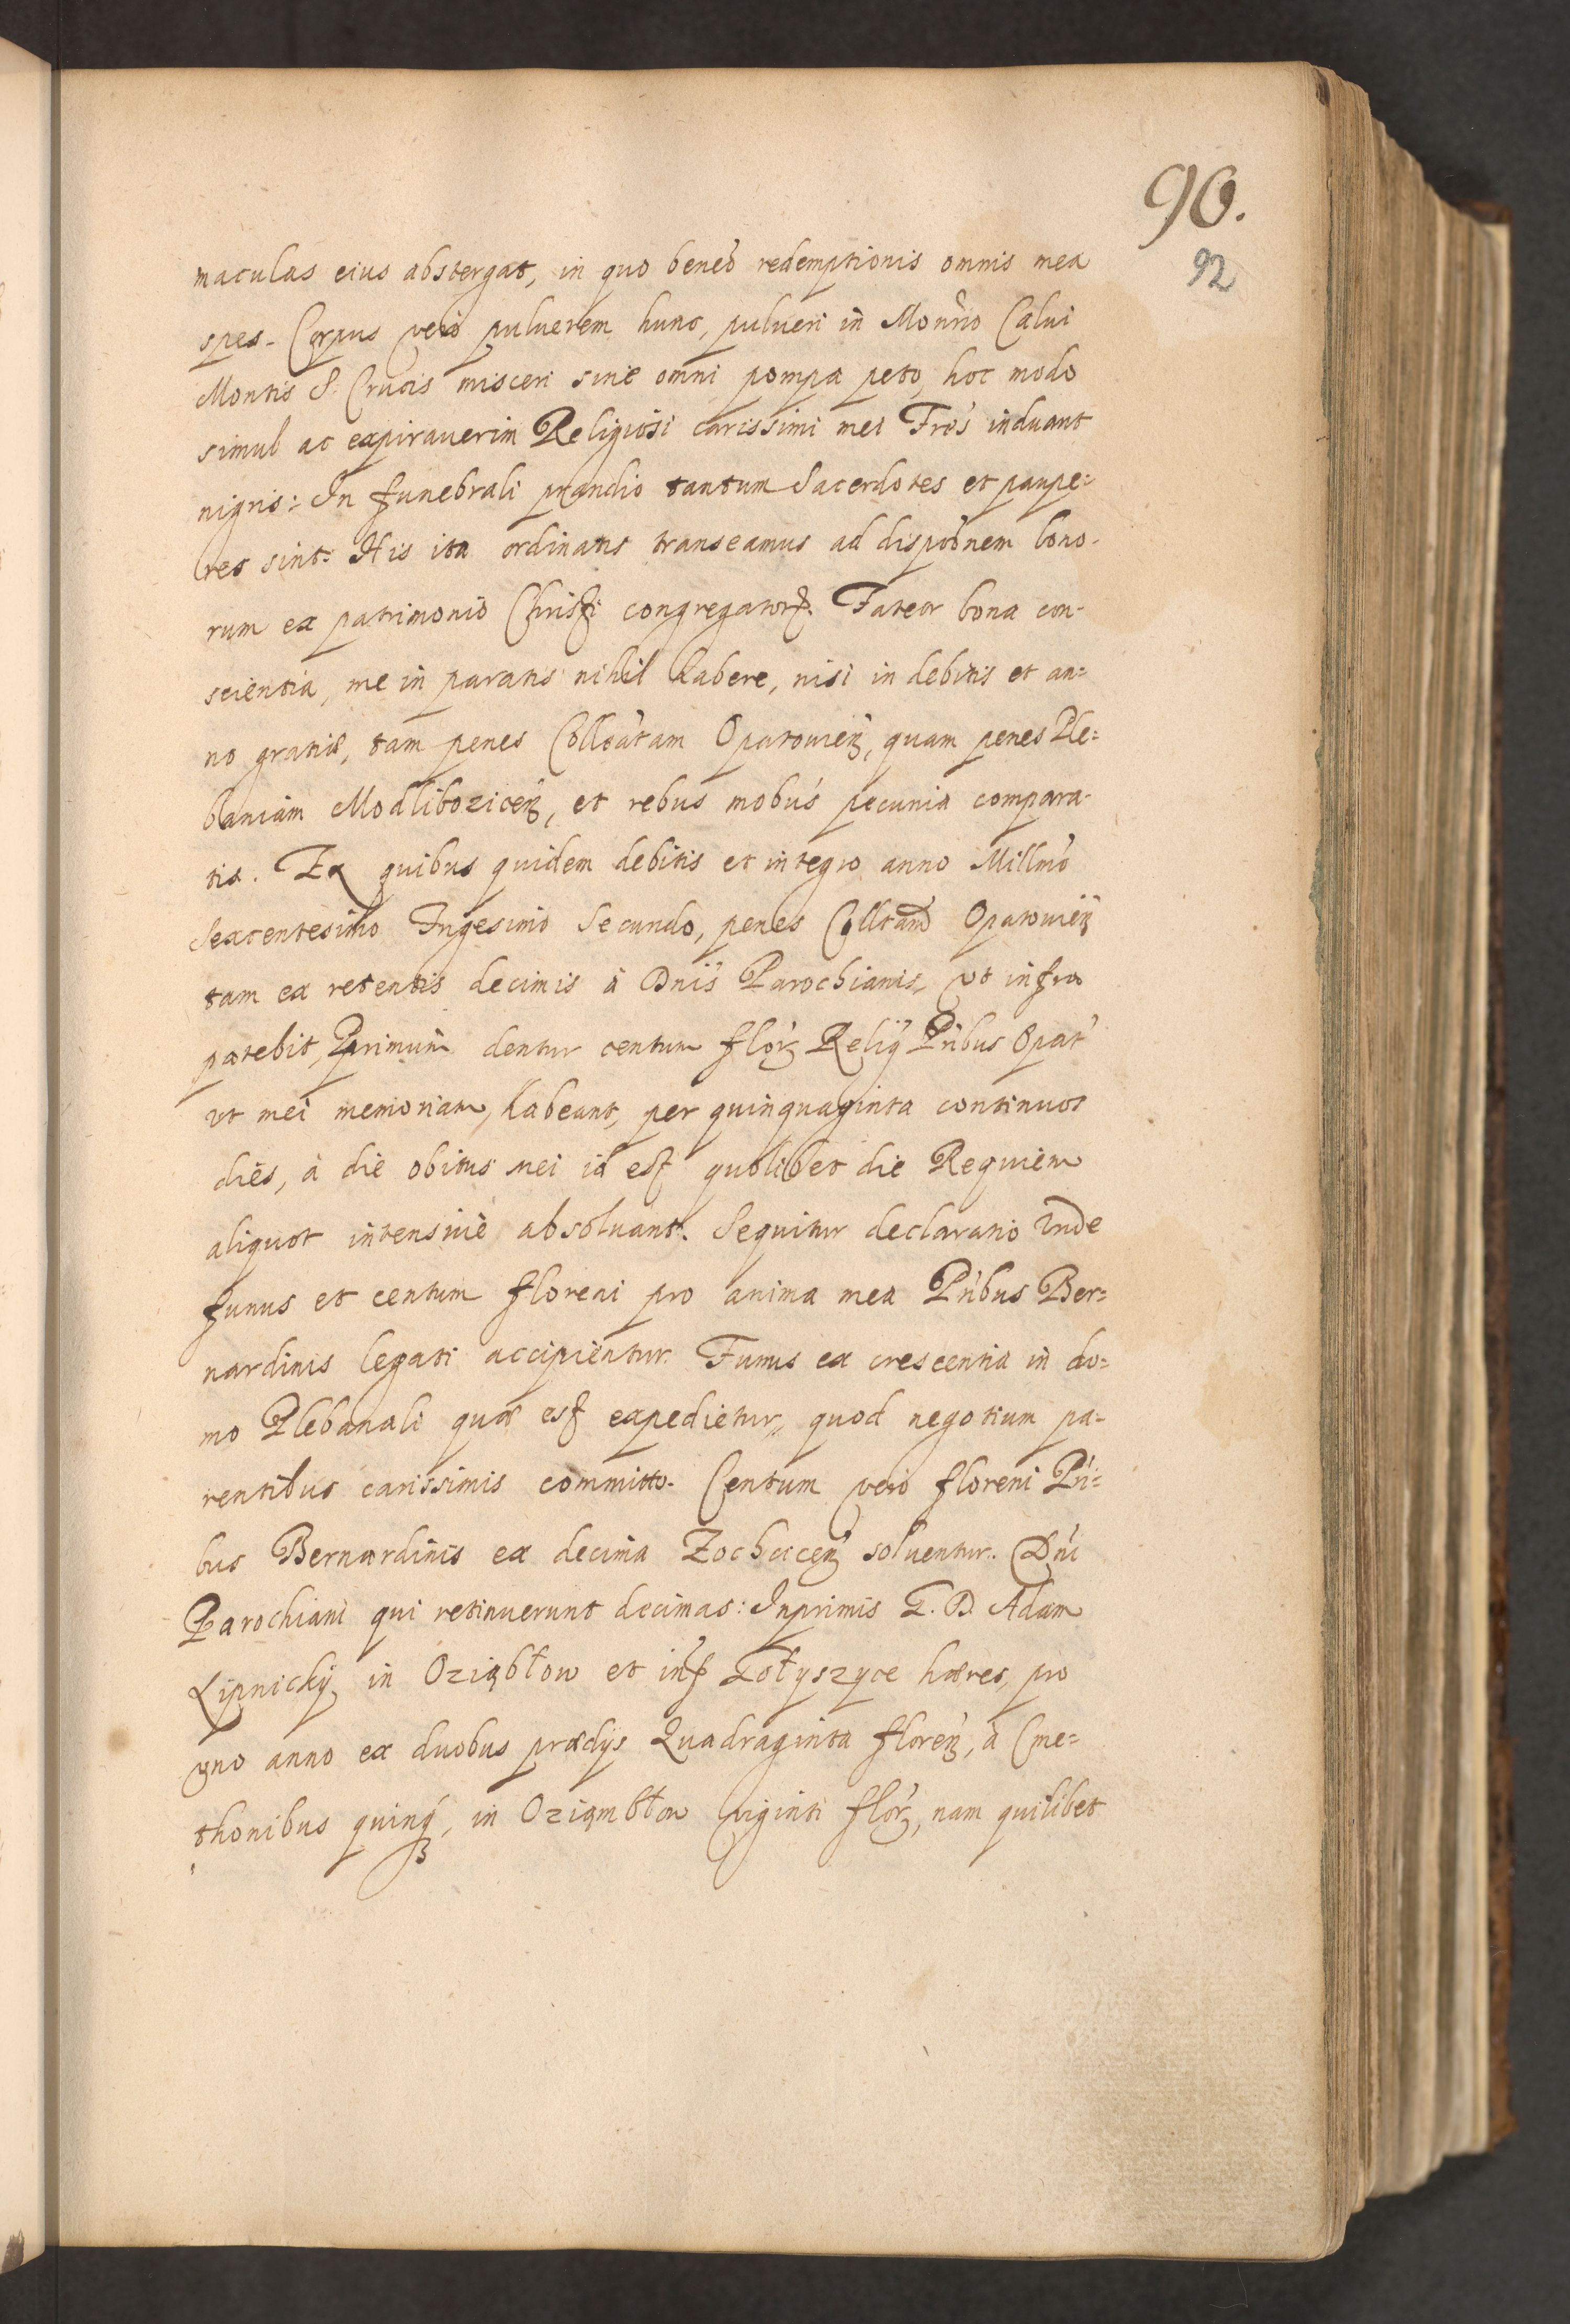 90.
92
maculas eius abstergat, in quo bened redemptionis omnis mea
spes. Corpus vero puluerem hunc, pulueri in Monrio Calui
Montis S. Crucis misceri sine omni pompa peto, hoc modo
simul ac expirauerim Religiosi carissimi mei Fres induant
nigris: In funebrali prandio tantum Sacerdotes et paupe=
res sint. His ita ordinatis transeamus ad disponem bono-
rum ex patrimonio Christi congregator. Fateor bona con-
scientia, me in paratis nihil habere, nisi in debitis et an=
no gratiæ, tam penes Colleatam Opatouien, quam penes Ple=
baniam Modlibozicen, et rebus mobus pecunia compara-
tis. Ex quibus quidem debitis et integro anno Millmo
Sexcentesimo Trigesimo Secundo, penes Colltam Opatouien
tam ex retentis decimis à Dnis Parochianis, vt infra
patebit, Primum dentur centum flor Relig Pribus Opat
vt mei memoriam habeant, per quinquaginta continuos
dies, à die obitus mei id est quolibet die Requiem
aliquot intensiue absoluant. Sequitur declaratio vnde
funus et centum floreni pro anima mea Pribus Ber=
nardinis legati accipientur. Funus ex crescentia in do=
mo Plebanali quæ est expedietur, quod negotium pa-
rentibus carissimis committo. Centum vero floreni Pri=
bus Bernardinis ex decima Zochcicen soluentur. Dni
Parochiani qui retinuerunt decimas: Inprimis G. D. Adam
Lipnicky in Oziąbłow et in Gołyszyce hæres, pro
vno anno ex duobus prædijs Quadraginta floren, à Cme=
thonibus quinq, in Oziąmbłow viginti flor, nam quilibet